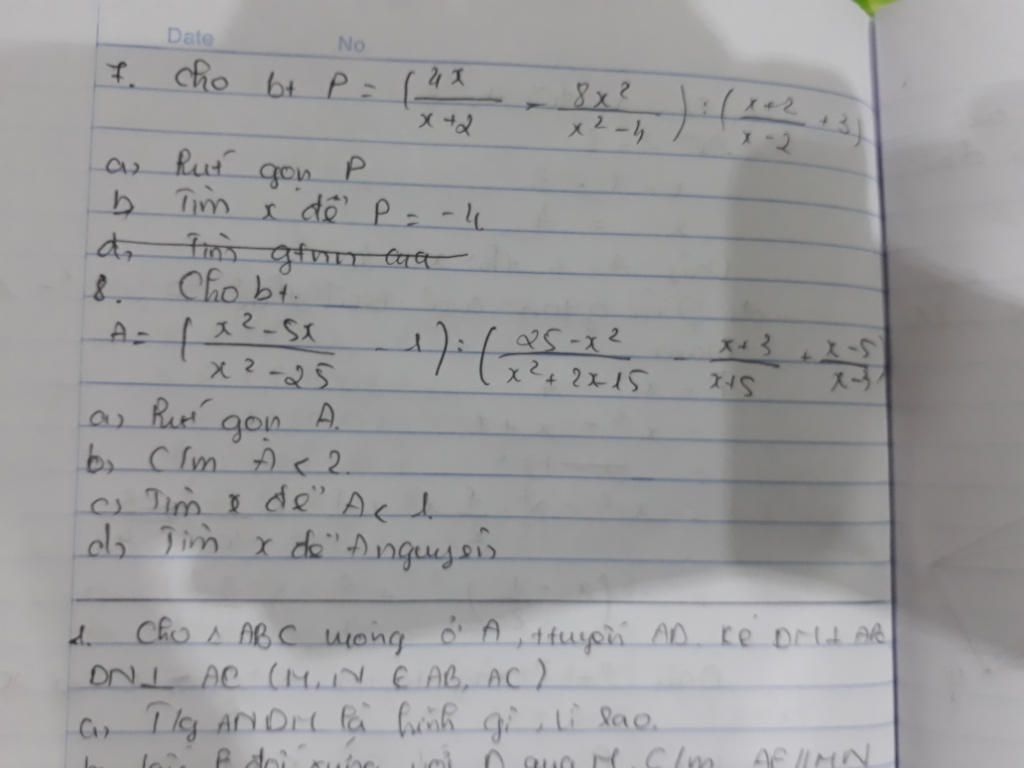 Date No
7. Cho bt P = (4x/x+2 - 8x²/x²-4) : (x+2/x-2 + 3)
a, Rút gọn P
b, Tìm x để P = -4
d, Tìm gtnn của
8. Cho bt.
A = (x²-5x/x²-25 - 1) : (25-x²/x²+2x-15 - x+3/x+5 + x-5/x-3)
a, Rút gọn A.
b, C/m A < 2.
c, Tìm x để A < 1.
d, Tìm x để A nguyên
1. Cho △ ABC vuông ở A, tuyến AD. Kẻ DM⊥ AB
DN⊥ AC (M, N ∈ AB, AC)
a, T/g ANDM là hình gì, vì sao.